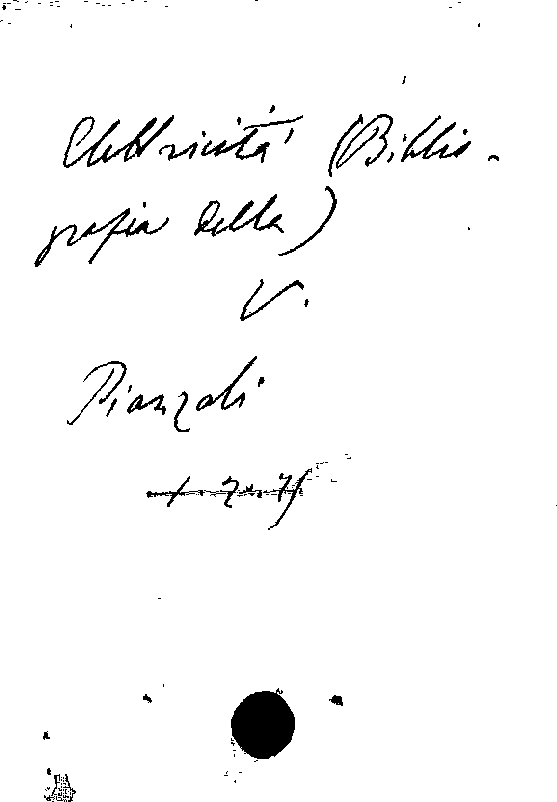 Elettricità (Biblio-
grafia della)
V.
Pianzoli